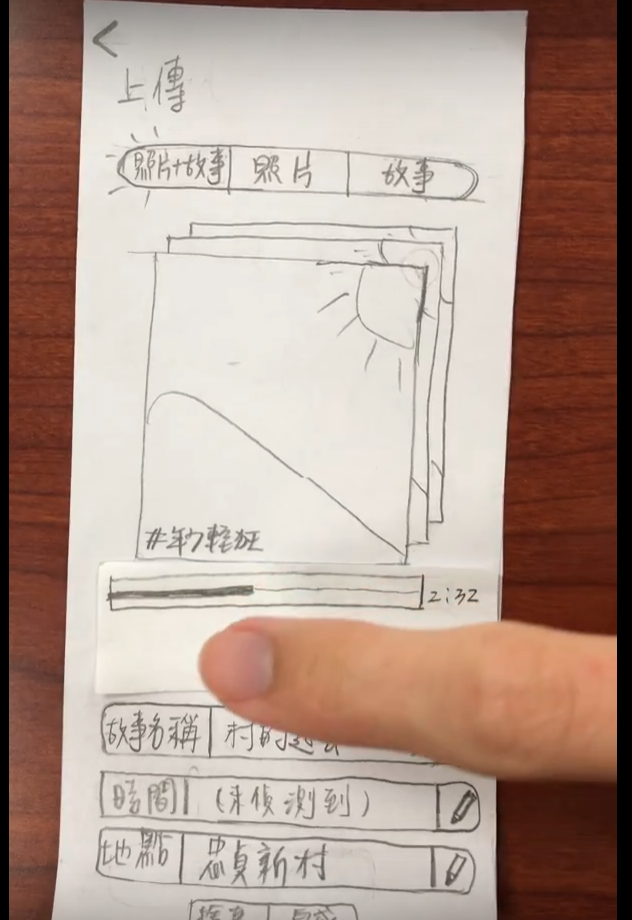 <
上傳
照片+故事 照片 故事
#年少輕狂
2:32
故事名稱 村的過去
時間 (未偵測到)
地點 忠貞新村